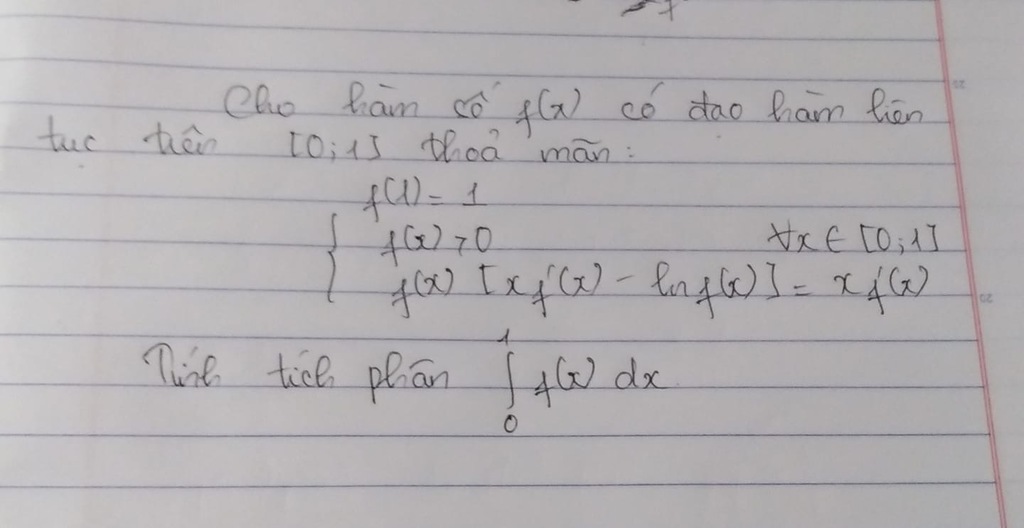 Cho hàm số f(x) có đạo hàm liên
tục trên [0;1] thoả mãn:
f(1) = 1
f(x) > 0 ∀x ∈ [0;1]
f(x) [xf'(x) - ln f(x)] = xf'(x)
Tính tích phân ∫₀¹ f(x) dx